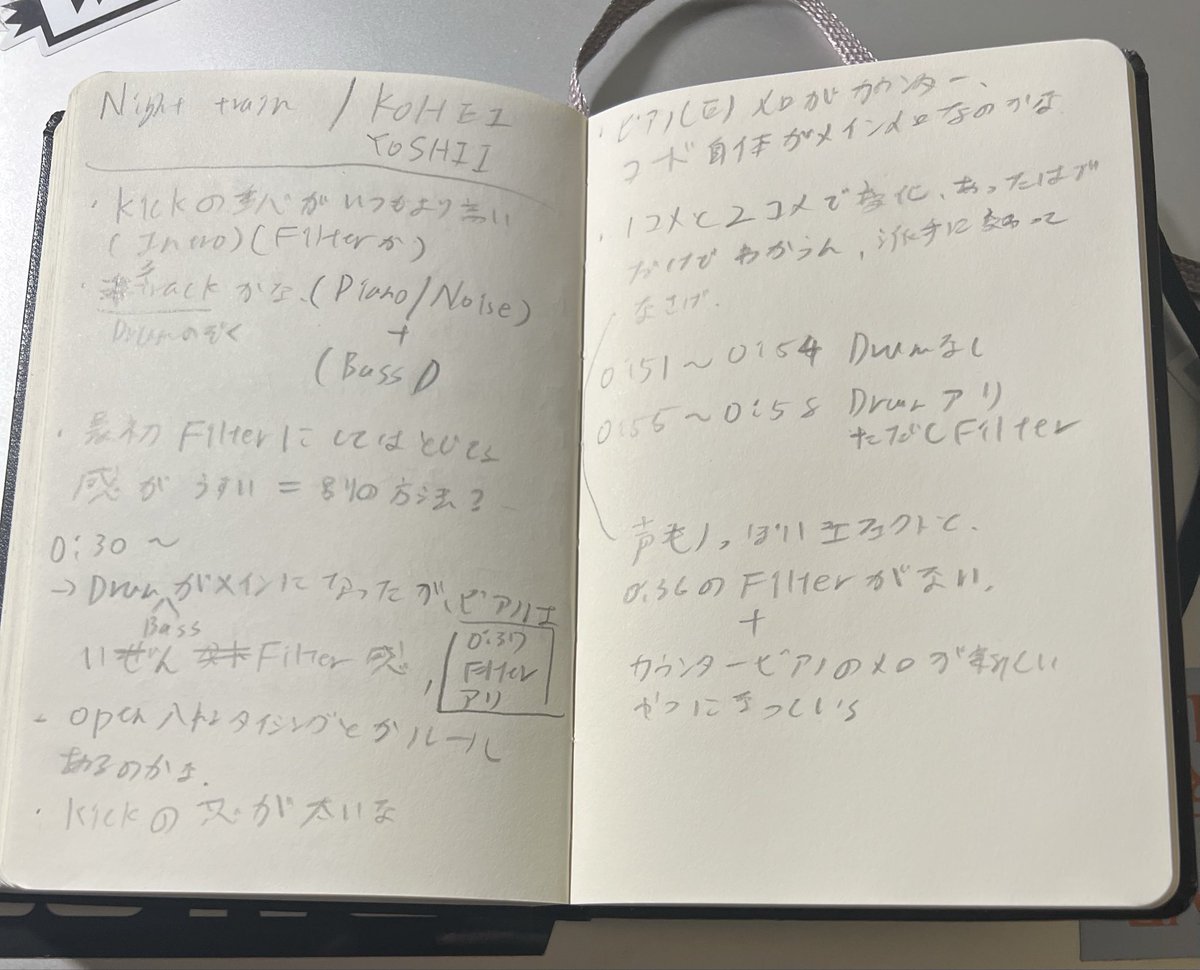 Night train / KOHEI
YOSHII
・Kickの芯がいつもより高い
(Intro)(Filterか)
・3 trackかな. (Piano/Noise)
Drumのぞく
+
(Bass D
・最初 Filterにしてはとじてる
感がうすい = 別の方法?
0:30 ~
→ Drumがメインになったが、ピアノは
Bass
いぜん Filter感,
0:37
Filter
アリ
- open ハットタイミングとかルール
あるのかな.
・Kickの芯が太いな
・ピアノ(E)メロがカウンター、
コード自体がメインメロなのかな
・1コメと2コメで変化、あったはず
だけでわからん,派手に変わって
なさげ.
0:51~0:54 Drumなし
0:55~0:58 Drumアリ
ただしFilter
声もノっぽいエフェクトと、
0:36のFilterがない.
+
カウンターピアノのメロが新しい
やつになっている